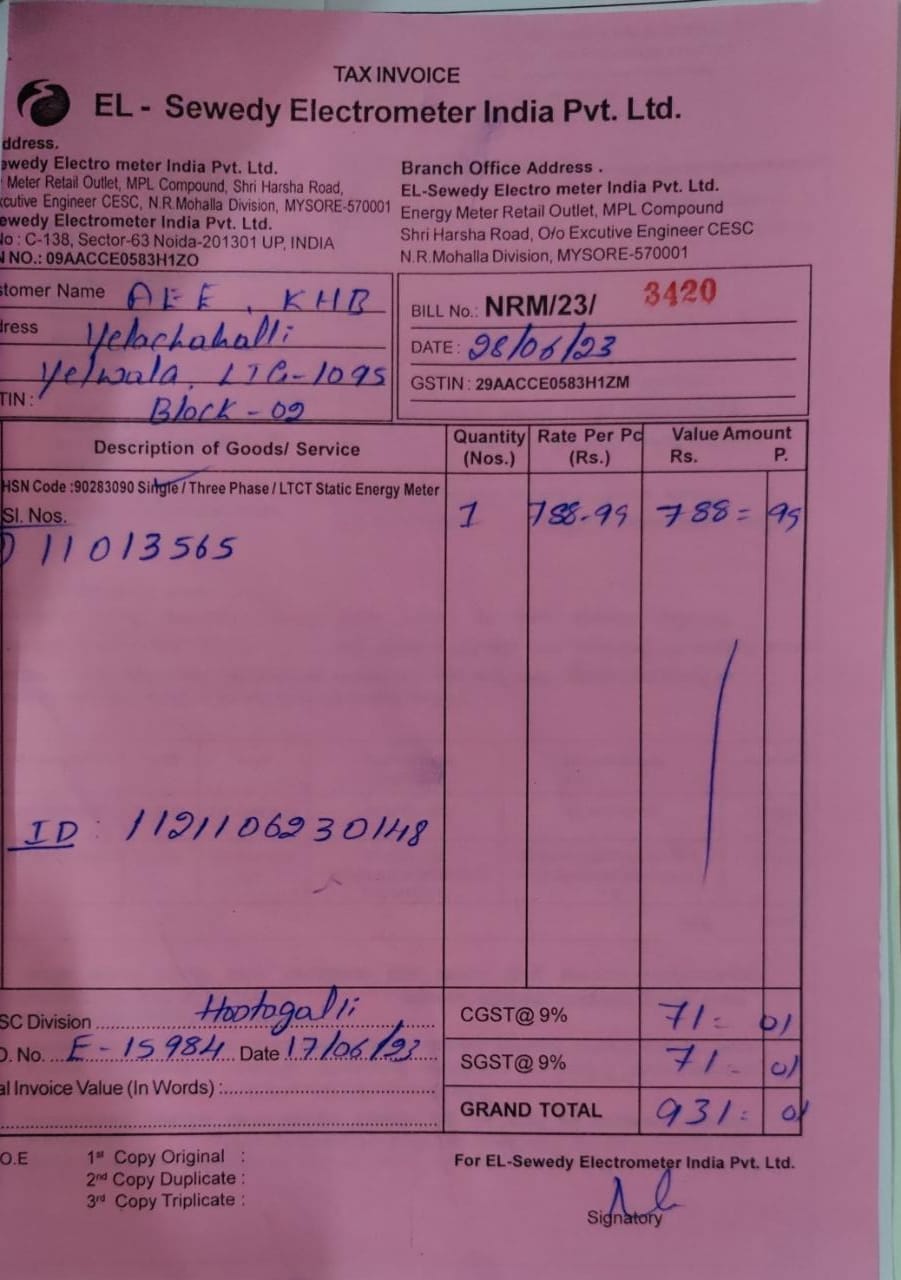 TAX INVOICE
EL - Sewedy Electrometer India Pvt. Ltd.
ddress.
ewedy Electro meter India Pvt. Ltd.
Meter Retail Outlet, MPL Compound, Shri Harsha Road,
xcutive Engineer CESC, N.R.Mohalla Division, MYSORE-570001
ewedy Electrometer India Pvt. Ltd.
No : C-138, Sector-63 Noida-201301 UP, INDIA
N NO.: 09AACCE0583H1ZO
Branch Office Address .
EL-Sewedy Electro meter India Pvt. Ltd.
Energy Meter Retail Outlet, MPL Compound
Shri Harsha Road, O/o Excutive Engineer CESC
N.R.Mohalla Division, MYSORE-570001
stomer Name AEE, KHB
dress Yelachahalli
Yelwala, LIG-1095
TIN : Block - 02
BILL No.: NRM/23/ 3420
DATE : 28/06/23
GSTIN : 29AACCE0583H1ZM
Description of Goods/ Service Quantity (Nos.) Rate Per Pc (Rs.) Value Amount Rs. P.
HSN Code :90283090 Single / Three Phase / LTCT Static Energy Meter
Sl. Nos. 1 788-99 788= 99
1) 11013565
ID : 1121106230148
SC Division Hootagalli
O. No. E-15984 Date 17/06/23
al Invoice Value (In Words) :
CGST@ 9% 71= 01
SGST@ 9% 71- 01
GRAND TOTAL 931= 01
O.E
1st Copy Original :
2nd Copy Duplicate :
3rd Copy Triplicate :
For EL-Sewedy Electrometer India Pvt. Ltd.
Signatory